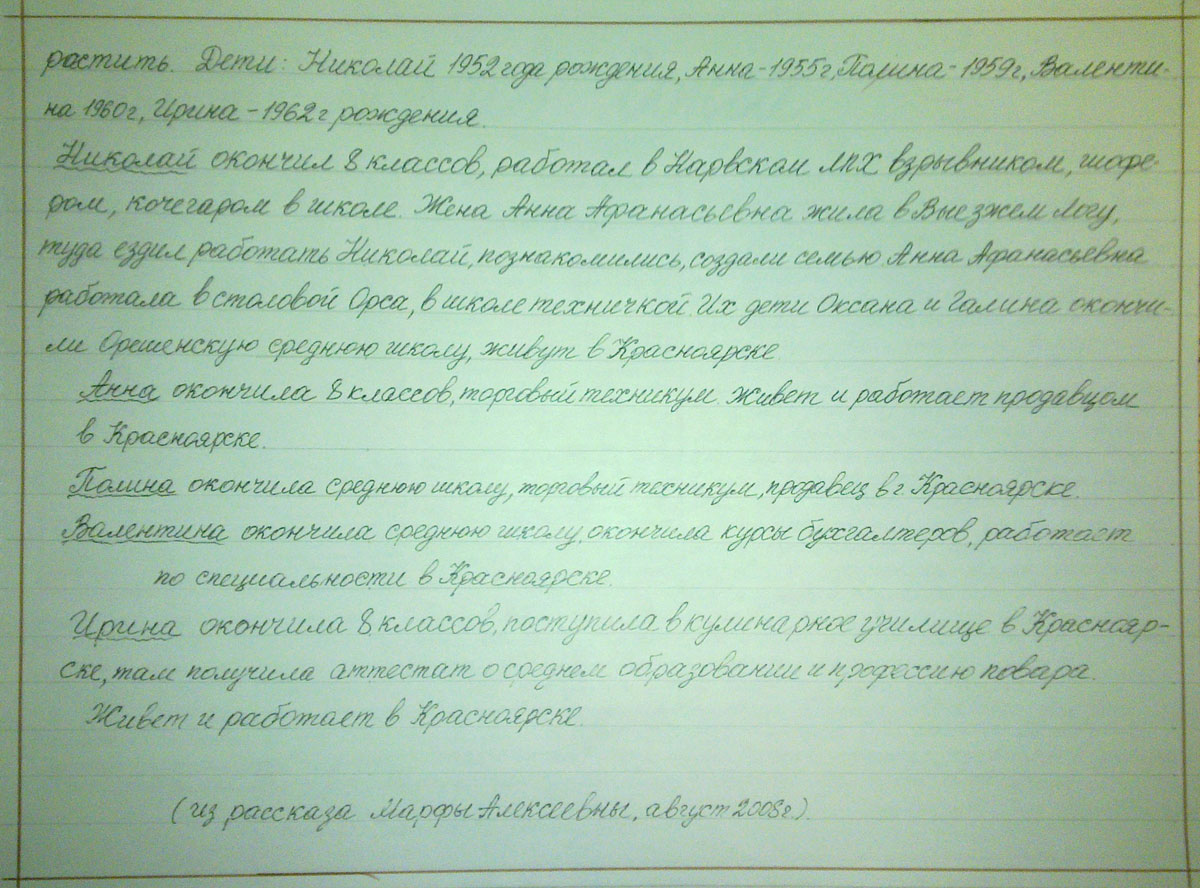 растить. Дети: Николай 1952 года рождения, Анна - 1955г, Полина - 1959г, Валенти-
на 1960г, Ирина - 1962г рождения.
Николай окончил 8 классов, работал в Нарвском ЛПХ взрывником, шофе-
ром, кочегаром в школе. Жена Анна Афанасьевна жила в Выезжем Логу,
туда ездил работать Николай, познакомились, создали семью Анна Афанасьевна
работала в столовой Орса, в школе техничкой. Их дети Оксана и Галина окончи-
ли Орешенскую среднюю школу, живут в Красноярске
Анна окончила 8 классов, торговый техникум. Живет и работает продавцом
в Красноярске.
Полина окончила среднюю школу, торговый техникум, продавец в г. Красноярске.
Валентина окончила среднюю школу, окончила курсы бухгалтеров, работает
по специальности в Красноярске.
Ирина окончила 8 классов, поступила в кулинарное училище в Краснояр-
ске, там получила аттестат о среднем образовании и профессию повара.
Живет и работает в Красноярске.
(из рассказа Марфы Алексеевны, август 2008г.)